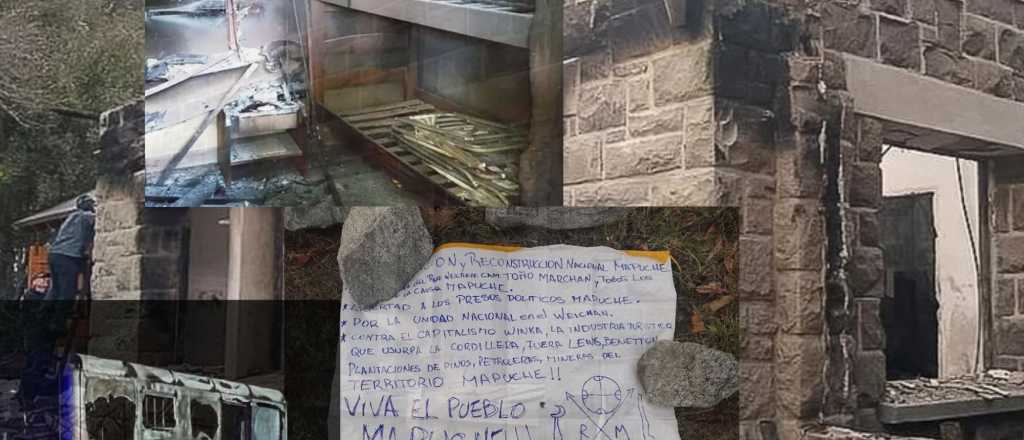 ON y RECONSTRUCCION NACIONAL MAPUCHE
POR WEICHAFE CAM TOÑO MARCHAN y TODOS LOS
LA CAUSA MAPUCHE.
LIBERTAD A LOS PRESOS POLITICOS MAPUCHE.
* POR LA UNIDAD NACIONAL en el WEICHAN.
* CONTRA EL CAPITALISMO WINKA, LA INDUSTRIA TURISTICA
QUE USURPA LA CORDILLERA, FUERA LEWIS, BENETTON
PLANTACIONES DE PINOS, PETROLERAS, MINERAS DEL
TERRITORIO MAPUCHE!!
VIVA EL PUEBLO
MAPUCHE!!!
R M